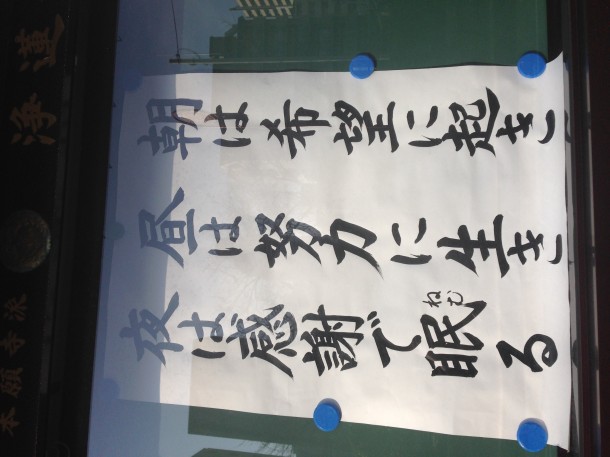 本願寺派 浄蓮
朝は希望に起き
昼は努力に生き
ねむ
夜は感謝で眠る